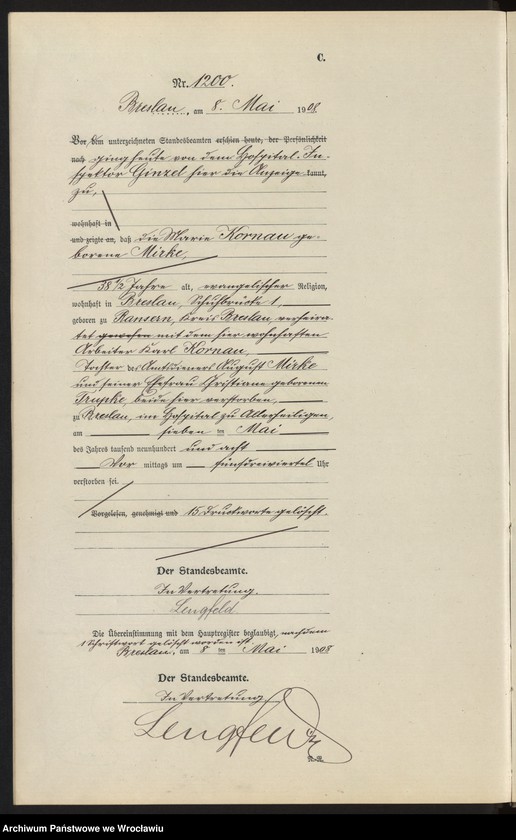 C.
Nr. 1200.
Breslau, am 8. Mai 1908
Vor dem unterzeichneten Standesbeamten erschien heute, der Persönlichkeit
nach ging heute von dem Hospital-In-
spektor Ginzel hier die Anzeige kannt,
zu,
wohnhaft in
und zeigte an, daß die Marie Kornau ge-
borene Mirke,
38 1/2 Jahre alt, evangelischer Religion,
wohnhaft in Breslau, Schuhbrücke 1,
geboren zu Ransern, Kreis Breslau, verheira-
tet gewesen mit dem hier wohnhaften
Arbeiter Karl Kornau,
Tochter des Amtsdieners August Mirke
und seiner Ehefrau Christiane geborenen
Trupke, beide hier verstorben,
zu Breslau, im Hospital zu Allerheiligen,
am sieben ten Mai
des Jahres tausend neunhundert und acht
Vor mittags um fünfdreiviertel Uhr
verstorben sei.
Vorgelesen, genehmigt und 15 Druckworte gelöscht.
Der Standesbeamte.
In Vertretung.
Lengfeld
Die Übereinstimmung mit dem Hauptregister beglaubigt, nachdem
1 Schriftwort gelöscht worden ist.
Breslau, am 8 ten Mai 1908
Der Standesbeamte.
In Vertretung
Lengfeld
Archiwum Państwowe we Wrocławiu